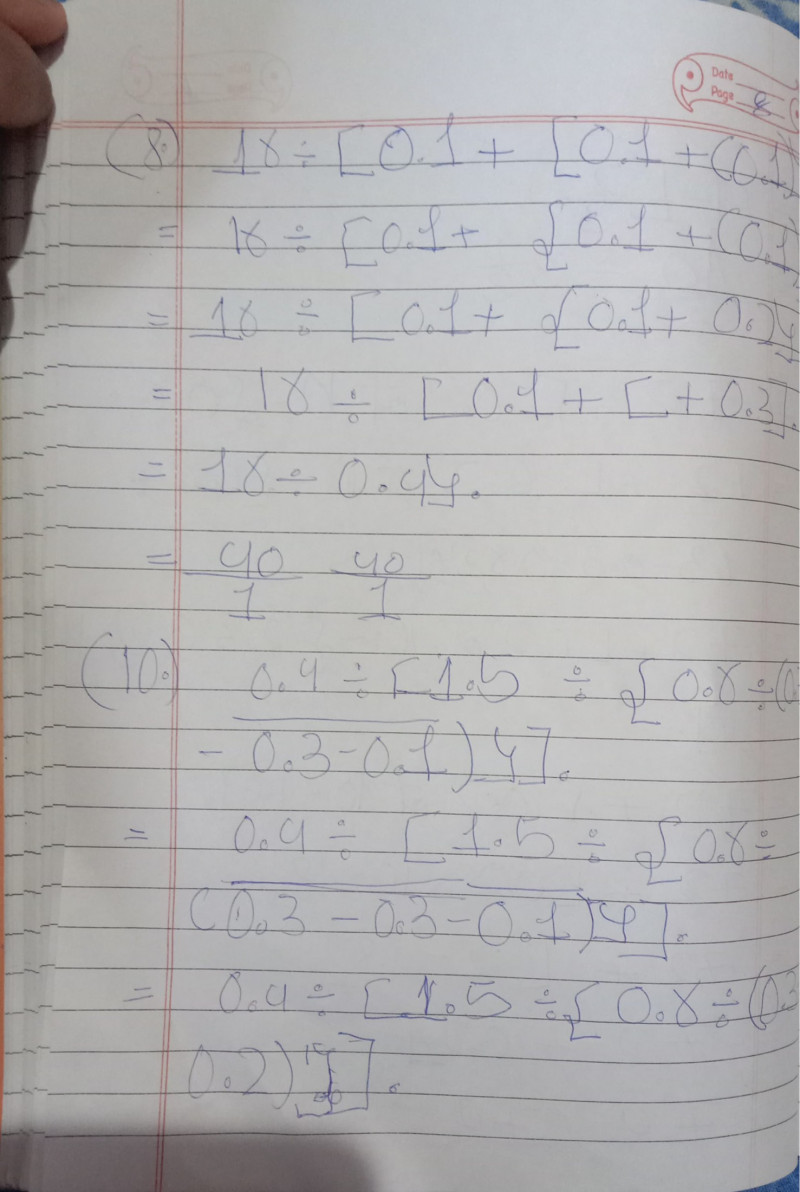 Date
Page 8
(8) 18 ÷ [0.1 + [0.1 + (0.1
= 18 ÷ [0.1 + {0.1 + (0.1
= 18 ÷ [0.1 + {0.1 + 0.2}
= 18 ÷ [0.1 + [ + 0.3].
= 18 ÷ 0.44.
= 40/1 40/1
(10) 0.4 ÷ [1.5 ÷ {0.8 ÷ (0.
- 0.3 - 0.1)}].
= 0.4 ÷ [1.5 ÷ {0.8 ÷
(0.3 - 0.3 - 0.1)}].
= 0.4 ÷ [1.5 ÷ {0.8 ÷ (0.3
0.2)}].